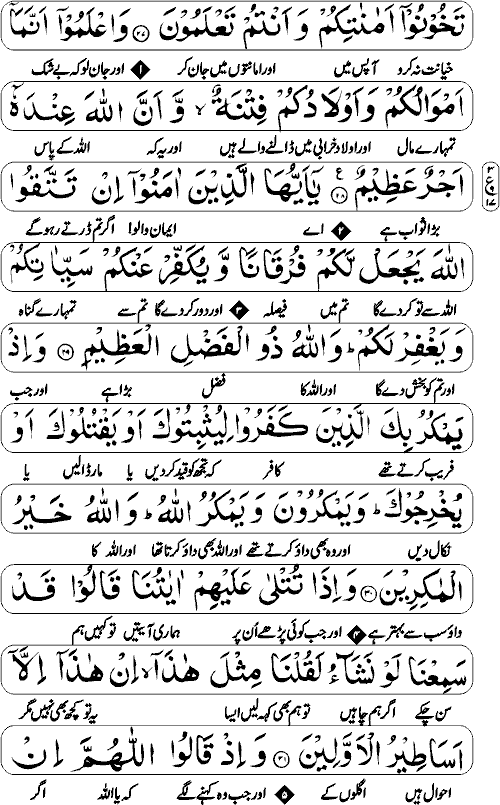 تَخُوْنُوْۤا اَمٰنٰتِكُمْ وَ اَنْتُمْ تَعْلَمُوْنَ ﴿۲۷﴾ وَاعْلَمُوْۤا اَنَّمَاۤ
خیانت نہ کرو آپس میں اور امانتوں میں جان کر ۱ اور جان لو کہ بے شک
اَمْوَالُكُمْ وَاَوْلَادُكُمْ فِتْنَةٌ ۙ وَّ اَنَّ اللّٰهَ عِنْدَهٗۤ
تمہارے مال اور اولاد خرابی میں ڈالنے والے ہیں اور یہ کہ اللہ کے پاس
اَجْرٌ عَظِيْمٌ ﴿۲۸﴾ ع يٰۤاَيُّهَا الَّذِيْنَ اٰمَنُوْۤا اِنْ تَتَّقُوا
بڑا ثواب ہے ۲ اے ایمان والوا اگر تم ڈرتے رہو گے
اللّٰهَ يَجْعَلْ لَّكُمْ فُرْقَانًا وَّ يُكَفِّرْ عَنْكُمْ سَيِّاٰتِكُمْ
اللہ سے تو کر دے گا تم میں فیصلہ ۳ اور دور کر دے گا تم سے تمہارے گناہ
وَ يَغْفِرْ لَكُمْ ؕ وَاللّٰهُ ذُو الْفَضْلِ الْعَظِيْمِ ﴿۲۹﴾ وَ اِذْ
اور تم کو بخش دے گا اور اللہ کا فضل بڑا ہے اور جب
يَمْكُرُ بِكَ الَّذِيْنَ كَفَرُوْا لِيُثْبِتُوْكَ اَوْ يَقْتُلُوْكَ اَوْ
فریب کرتے تھے کافر کہ تجھ کو قید کر دیں یا مار ڈالیں یا
يُخْرِجُوْكَ ؕ وَيَمْكُرُوْنَ وَ يَمْكُرُ اللّٰهُ ؕ وَاللّٰهُ خَيْرُ
نکال دیں اور وہ بھی داؤ کرتے تھے اور اللہ بھی داؤ کرتا تھا اور اللہ کا
الْمٰكِرِيْنَ ﴿۳۰﴾ وَ اِذَا تُتْلٰى عَلَيْهِمْ اٰيٰتُنَا قَالُوْا قَدْ
داؤ سب سے بہتر ہے ۴ اور جب کوئی پڑھے اُن پر ہماری آیتیں تو کہیں ہم
سَمِعْنَا لَوْ نَشَآءُ لَقُلْنَا مِثْلَ هٰذَاۤ ۙ اِنْ هٰذَاۤ اِلَّاۤ
سن چکے اگر ہم چاہیں تو ہم بھی کہہ لیں ایسا یہ تو کچھ بھی نہیں مگر
اَسَاطِيْرُ الْاَوَّلِيْنَ ﴿۳۱﴾ وَ اِذْ قَالُوا اللّٰهُمَّ اِنْ
احوال ہیں اگلوں کے ۵ اور جب وہ کہنے لگے کہ یا اللہ اگر